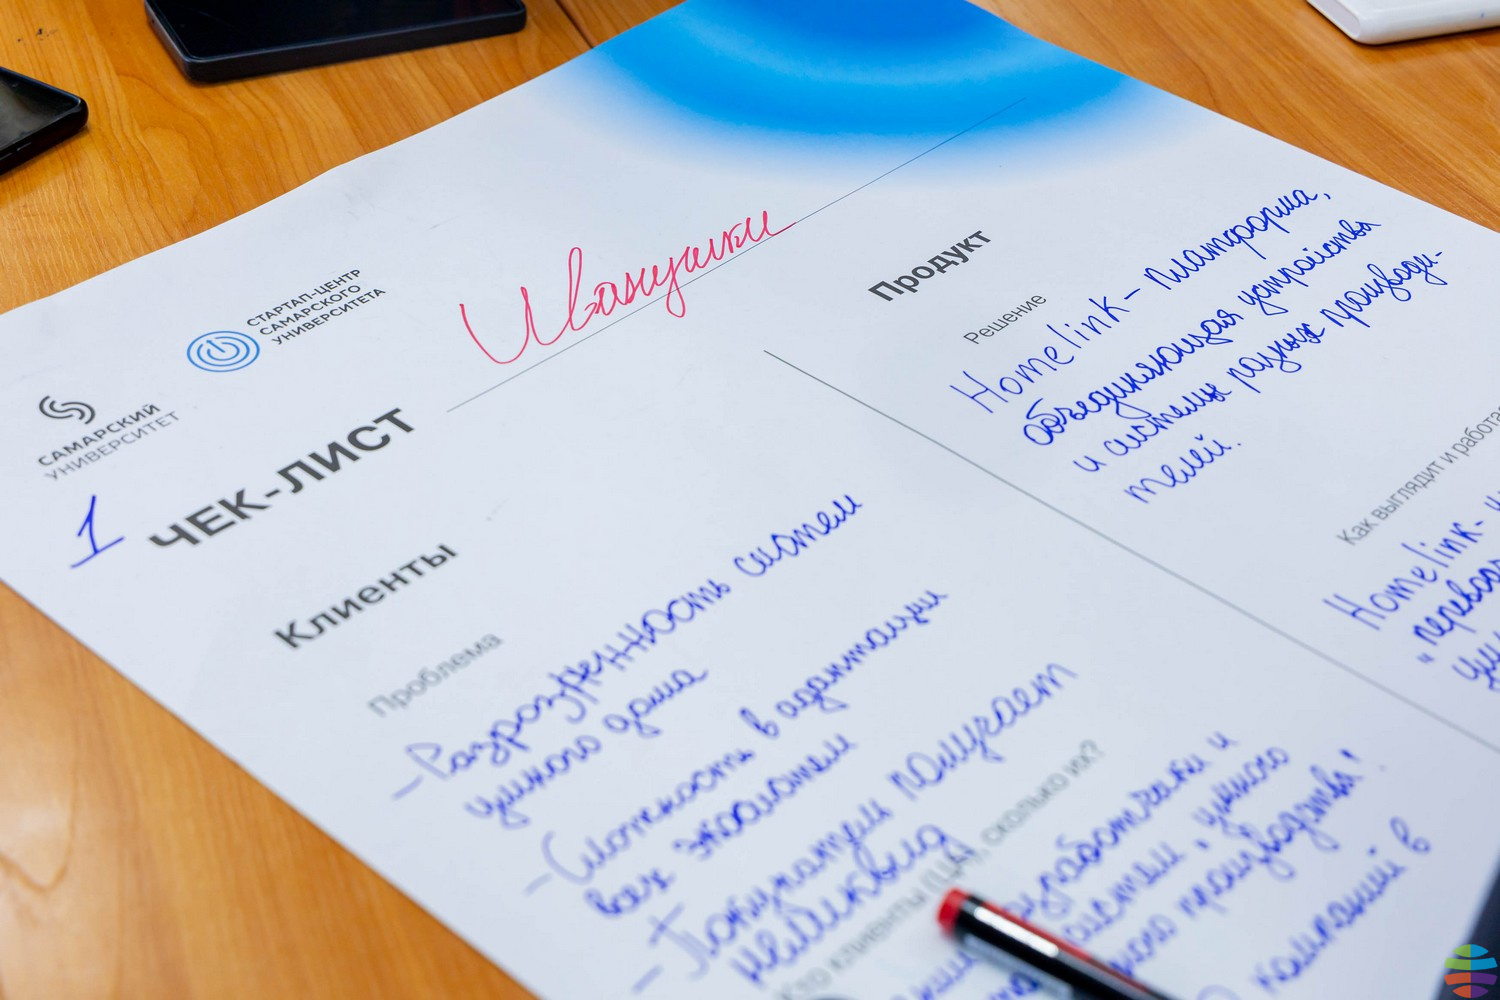 СТАРТАП-ЦЕНТР
САМАРСКОГО
УНИВЕРСИТЕТА
САМАРСКИЙ
УНИВЕРСИТЕТ
Иванушки
1
ЧЕК-ЛИСТ
Клиенты
Проблема
- Разрозненность систем
умного дома
- Сложность в адаптации
всех экосистем
- Покупатель получает
неликвид
кто клиенты (ЦА), сколько их?
разработчики и
систем "умного
производства".
компаний в
Продукт
Решение
Home link - платформа,
объединяющая устройства
и системы разных производи-
телей.
Как выглядит и работа
Home link -
"перевод